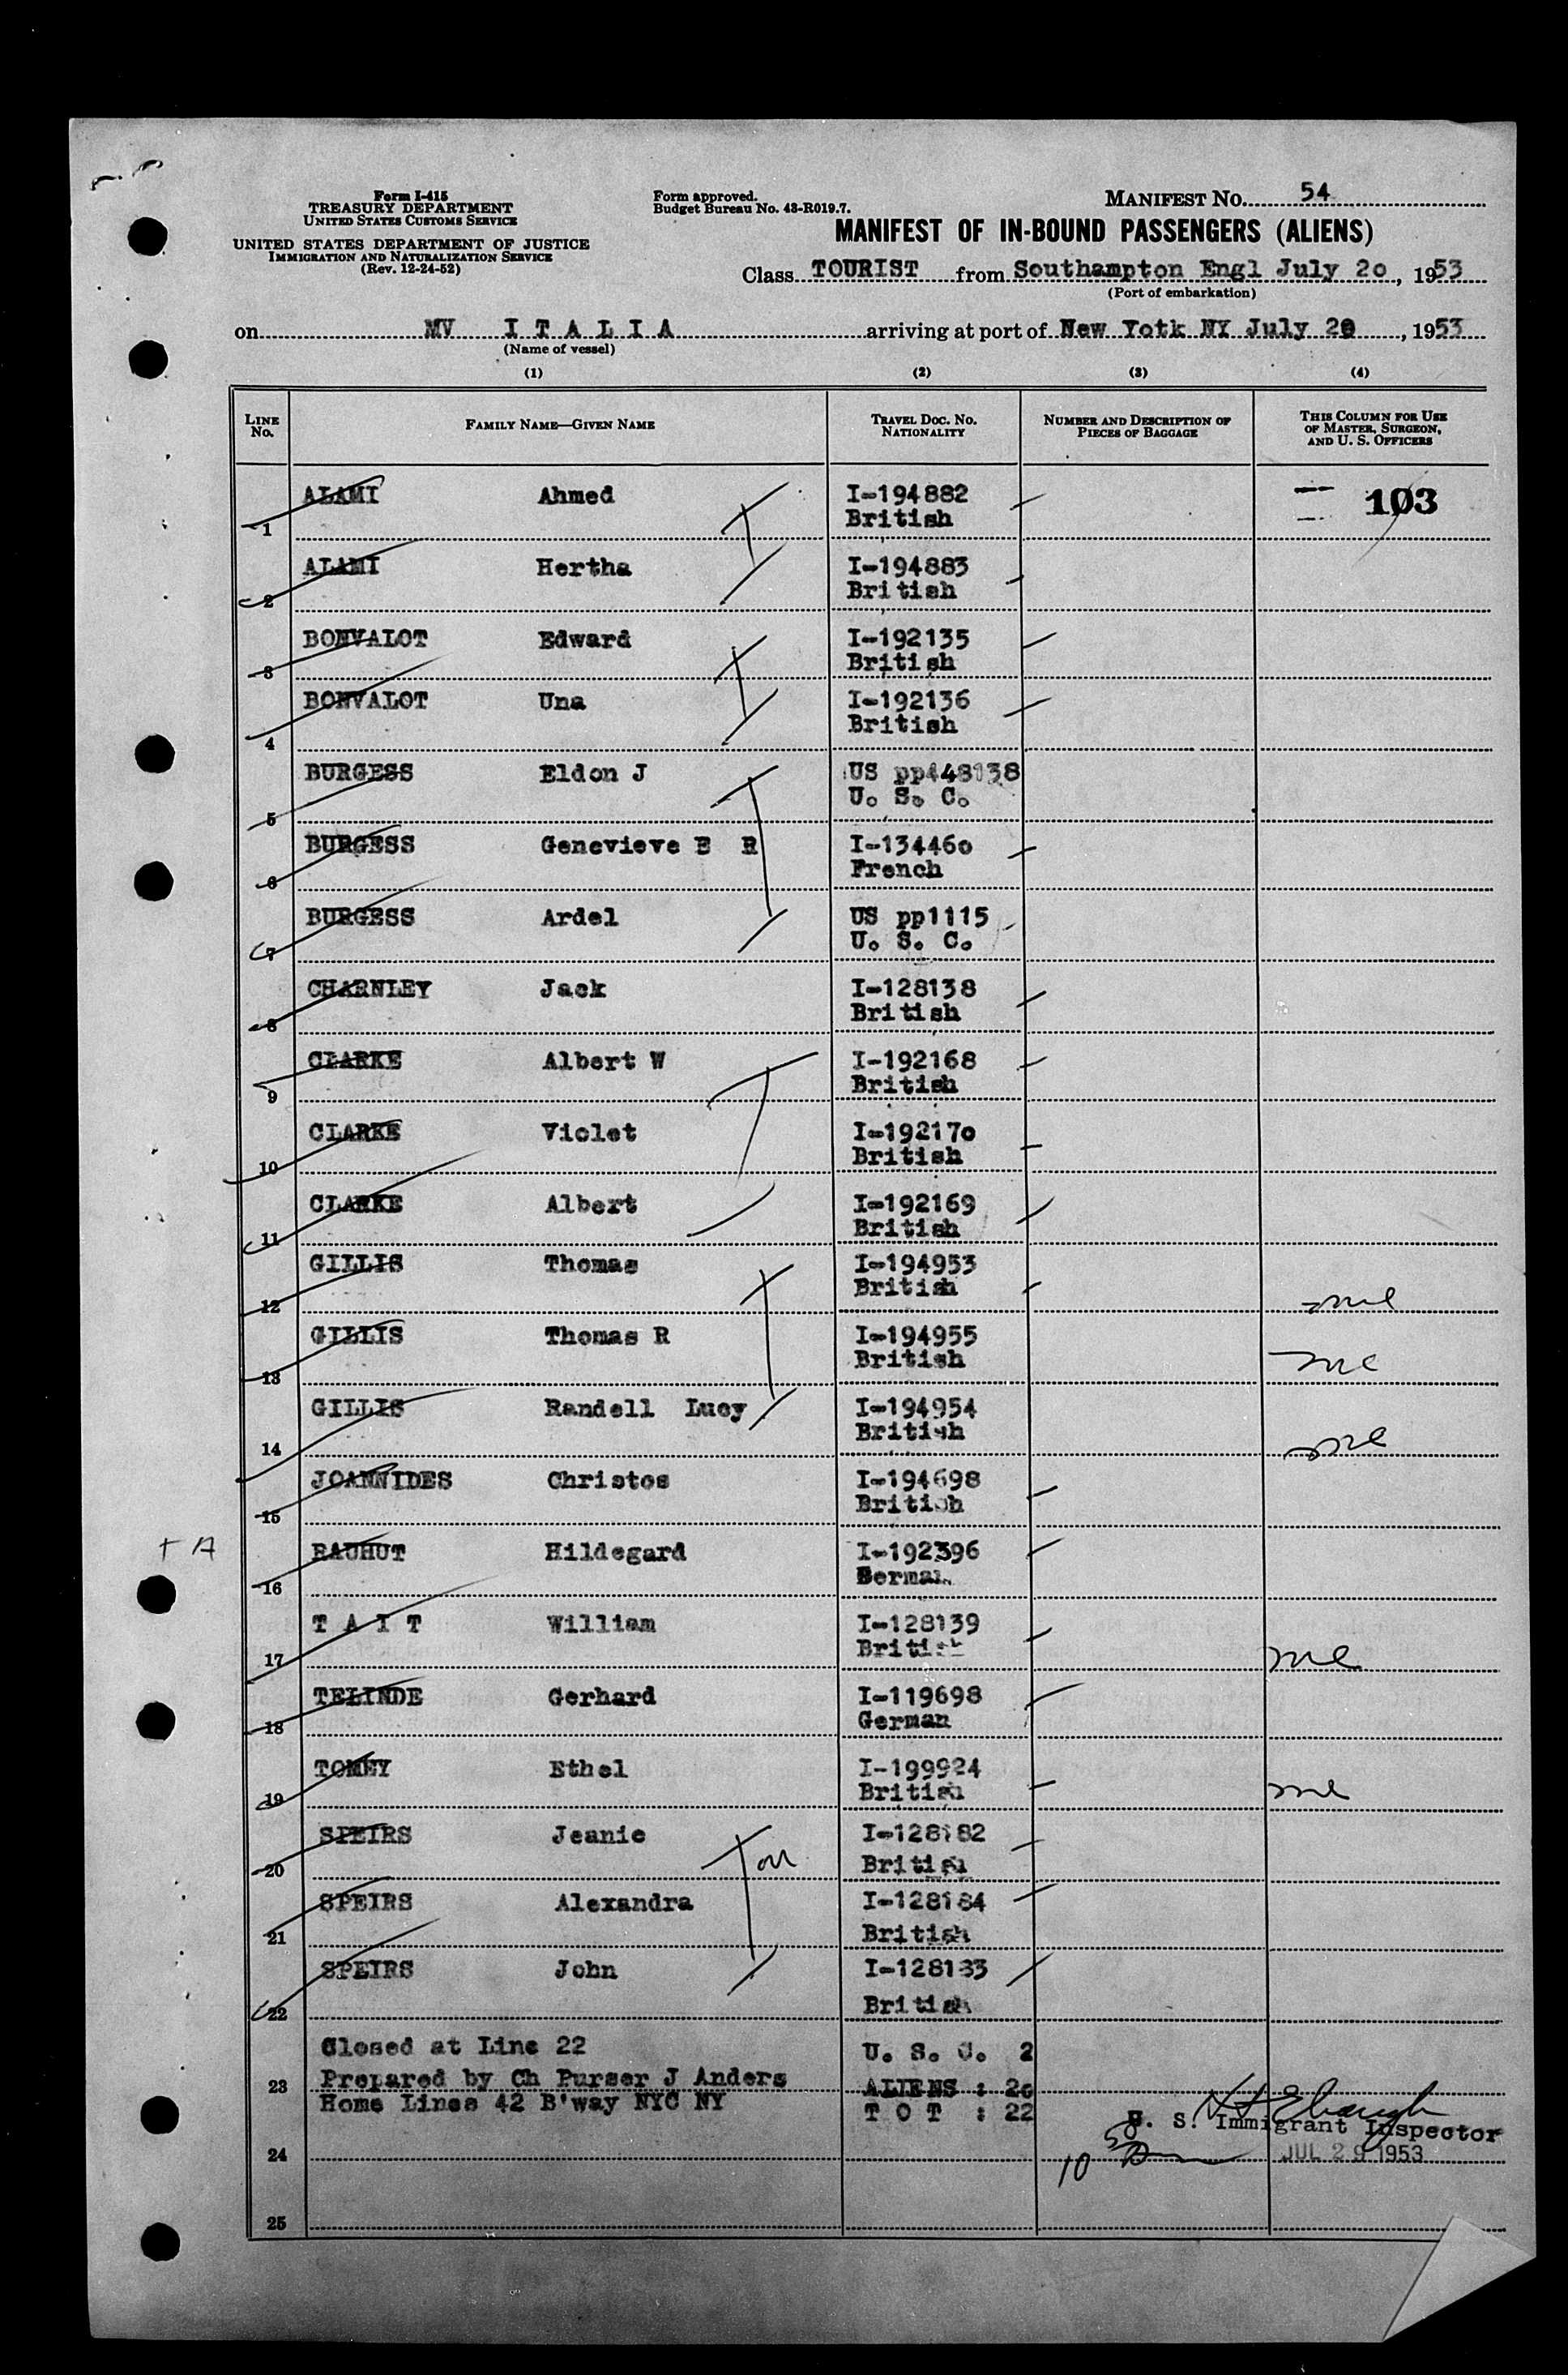 Form I-415
TREASURY DEPARTMENT
UNITED STATES CUSTOMS SERVICE
UNITED STATES DEPARTMENT OF JUSTICE
IMMIGRATION AND NATURALIZATION SERVICE
(Rev. 12-24-52)
Form approved.
Budget Bureau No. 43-R019.7.
MANIFEST No. 54
MANIFEST OF IN-BOUND PASSENGERS (ALIENS)
Class TOURIST from Southampton Engl July 20, 1953
(Port of embarkation)
on MV I T A L I A arriving at port of New Yotk NY July 29, 1953
(Name of vessel)
(1) (2) (3) (4)
LINE No. FAMILY NAME—GIVEN NAME TRAVEL DOC. NO. NATIONALITY NUMBER AND DESCRIPTION OF PIECES OF BAGGAGE THIS COLUMN FOR USE OF MASTER, SURGEON, AND U. S. OFFICERS
1 ALAMI Ahmed I-194882 103
British
2 ALAMI Hertha I-194883
British
3 BONVALOT Edward I-192135
British
4 BONVALOT Una I-192136
British
5 BURGESS Eldon J US pp448138
U. S. C.
6 BURGESS Genevieve E R I-134460
French
7 BURGESS Ardel US pp1115
U. S. C.
8 CHARNLEY Jack I-128138
British
9 CLARKE Albert W I-192168
British
10 CLARKE Violet I-192170
British
11 CLARKE Albert I-192169
British
12 GILLIS Thomas I-194953
British
13 GILLIS Thomas R I-194955
British
14 GILLIS Randell Lucy I-194954
British
15 JOANNIDES Christos I-194698
British
+ A
16 RAUHUT Hildegard I-192396
German
17 T A I T William I-128139
British
18 TELINDE Gerhard I-119698
German
19 TOMEY Ethel I-199924
British
20 SPEIRS Jeanie I-128182
British
21 SPEIRS Alexandra I-128184
British
22 SPEIRS John I-128183
British
Closed at Line 22 U. S. C. 2
23 Prepared by Ch Purser J Anders ALIENS : 20
Home Lines 42 B'way NYC NY T O T : 22
U. S. Immigrant Inspector
24 JUL 29 1953
25